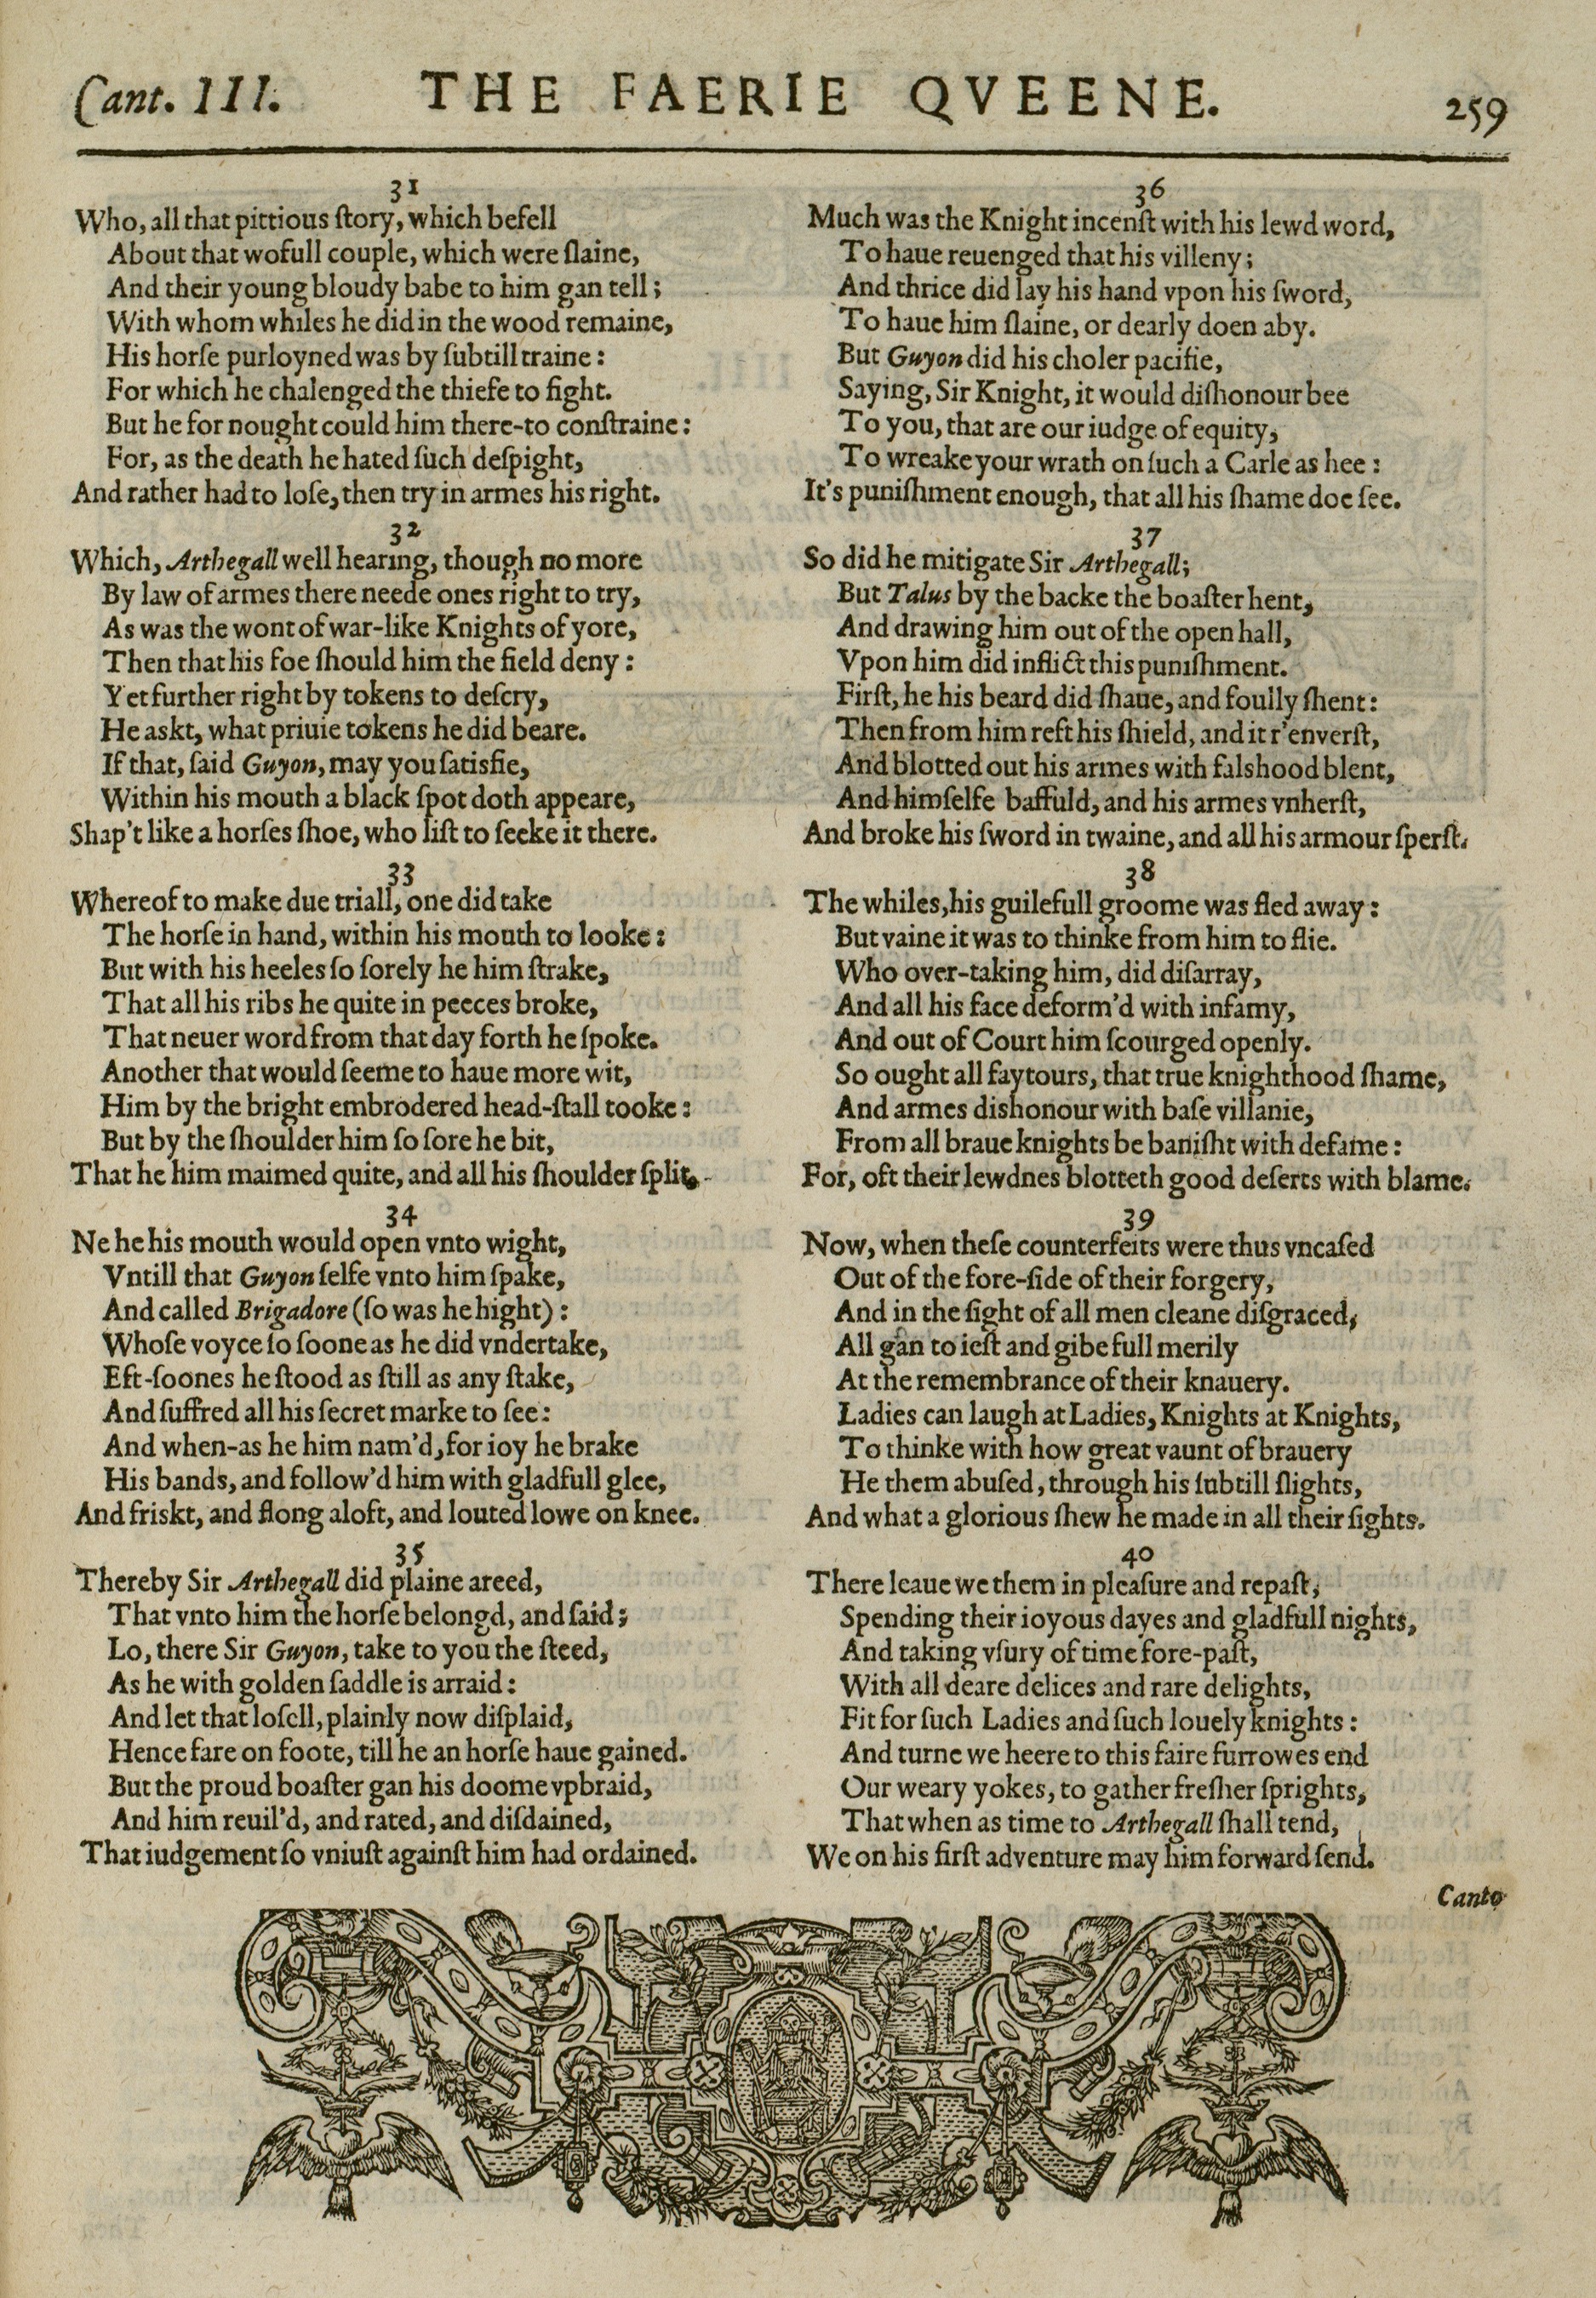 Cant. III. THE FAERIE QVEENE. 259
31
Who, all that pittious ſtory, which befell
About that wofull couple, which were ſlaine,
And their young bloudy babe to him gan tell;
With whom whiles he did in the wood remaine,
His horſe purloyned was by ſubtill traine:
For which he chalenged the thiefe to fight.
But he for nought could him there-to conſtraine:
For, as the death he hated ſuch deſpight,
And rather had to loſe, then try in armes his right.
32
Which, Arthegall well hearing, though no more
By law of armes there neede ones right to try,
As was the wont of war-like Knights of yore,
Then that his foe ſhould him the field deny:
Yet further right by tokens to deſcry,
He askt, what priuie tokens he did beare.
If that, ſaid Guyon, may you ſatisfie,
Within his mouth a black ſpot doth appeare,
Shap't like a horſes ſhoe, who liſt to ſeeke it there.
33
Whereof to make due triall, one did take
The horſe in hand, within his mouth to looke:
But with his heeles ſo ſorely he him ſtrake,
That all his ribs he quite in peeces broke,
That neuer word from that day forth he ſpoke.
Another that would ſeeme to haue more wit,
Him by the bright embrodered head-ſtall tooke:
But by the ſhoulder him ſo ſore he bit,
That he him maimed quite, and all his ſhoulder ſplit.
34
Ne he his mouth would open vnto wight,
Vntill that Guyon ſelfe vnto him ſpake,
And called Brigadore (ſo was he hight):
Whoſe voyce ſo ſoone as he did vndertake,
Eft-ſoones he ſtood as ſtill as any ſtake,
And ſuffred all his ſecret marke to ſee:
And when-as he him nam'd, for ioy he brake
His bands, and follow'd him with gladfull glee,
And friskt, and flong aloft, and louted lowe on knee.
35
Thereby Sir Arthegall did plaine areed,
That vnto him the horſe belongd, and ſaid;
Lo, there Sir Guyon, take to you the ſteed,
As he with golden ſaddle is arraid:
And let that loſell, plainly now diſplaid,
Hence fare on foote, till he an horſe haue gained.
But the proud boaſter gan his doome vpbraid,
And him reuil'd, and rated, and diſdained,
That iudgement ſo vniuſt againſt him had ordained.
36
Much was the Knight incenſt with his lewd word,
To haue reuenged that his villeny;
And thrice did lay his hand vpon his ſword,
To haue him ſlaine, or dearly doen aby.
But Guyon did his choler pacifie,
Saying, Sir Knight, it would diſhonour bee
To you, that are our iudge of equity,
To wreake your wrath on ſuch a Carle as hee:
It's puniſhment enough, that all his ſhame doe ſee.
37
So did he mitigate Sir Arthegall;
But Talus by the backe the boaſter hent,
And drawing him out of the open hall,
Vpon him did inflict this puniſhment.
Firſt, he his beard did ſhaue, and foully ſhent:
Then from him reft his ſhield, and it r'enverſt,
And blotted out his armes with falshood blent,
And himſelfe baffuld, and his armes vnherſt,
And broke his ſword in twaine, and all his armour ſperſt.
38
The whiles, his guilefull groome was fled away:
But vaine it was to thinke from him to flie.
Who over-taking him, did diſarray,
And all his face deform'd with infamy,
And out of Court him ſcourged openly.
So ought all faytours, that true knighthood ſhame,
And armes dishonour with baſe villanie,
From all braue knights be baniſht with defame:
For, oft their lewdnes blotteth good deſerts with blame.
39
Now, when theſe counterfeits were thus vncaſed
Out of the fore-ſide of their forgery,
And in the ſight of all men cleane diſgraced,
All gan to ieſt and gibe full merily
At the remembrance of their knauery.
Ladies can laugh at Ladies, Knights at Knights,
To thinke with how great vaunt of brauery
He them abuſed, through his ſubtill ſlights,
And what a glorious ſhew he made in all their ſights.
40
There leaue we them in pleaſure and repaſt,
Spending their ioyous dayes and gladfull nights,
And taking vſury of time fore-paſt,
With all deare delices and rare delights,
Fit for ſuch Ladies and ſuch louely knights:
And turne we heere to this faire furrowes end
Our weary yokes, to gather freſher ſprights,
That when as time to Arthegall ſhall tend,
We on his firſt adventure may him forward ſend.
Canto